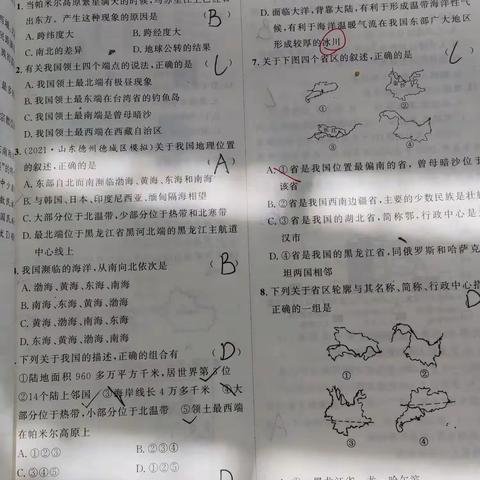 出东方。产生这种现象的原因是 (B)
A. 跨纬度大 B. 跨经度大
C. 南北的差异 D. 地球公转的结果
2. 有关我国领土四个端点的说法,正确的是 ( C
A. 我国领土最北端有极昼现象
B. 我国领土最东端在台湾省的钓鱼岛
C. 我国领土最南端是曾母暗沙
D. 我国领土最西端在西藏自治区
3. (2021·山东德州德城区模拟)关于我国地理位置
的叙述,正确的是 (A)
A. 东部自北而南濒临渤海、黄海、东海和南海
B. 与韩国、日本、印度尼西亚、缅甸隔海相望
C. 大部分位于北温带,少部分位于热带和北寒带
D. 最北端位于黑龙江省黑河北端的黑龙江主航道
中心线上
我国濒临的海洋,从南向北依次是 (B
A. 渤海、黄海、东海、南海
B. 南海、东海、黄海、渤海
C. 黄海、渤海、南海、东海
D. 东海、南海、黄海、渤海
下列关于我国的描述,正确的组合有 (D
①陆地面积 960 多万平方千米,居世界第 位
②14个陆上邻国 ③海岸线长 4 万多千米 ④大
部分位于热带,小部分位于北温带 ⑤领土最西端
在帕米尔高原上
A. ①②③ B. ②③④
C. ③④⑤ D. ①②⑤
D
D. 面临大洋,背靠大陆,有利于形成温带海洋性气
候,有利于海洋温暖气流在我国东部广大地区
形成较厚的冰川
7. 关于下图四个省区的叙述,正确的是 ( C
①
②
③
④
A. ①省是我国位置最偏南的省,曾母暗沙位于
该省
B. ②省是我国西南边疆省,主要的少数民族是壮
C. ③省是我国的湖北省,简称鄂,行政中心是
汉市
D. ④省是我国的黑龙江省,同俄罗斯和哈萨克
坦两国相邻
8. 下列关于各省区轮廓与其名称、简称、行政中心
正确的一组是 D
①
②
③
④